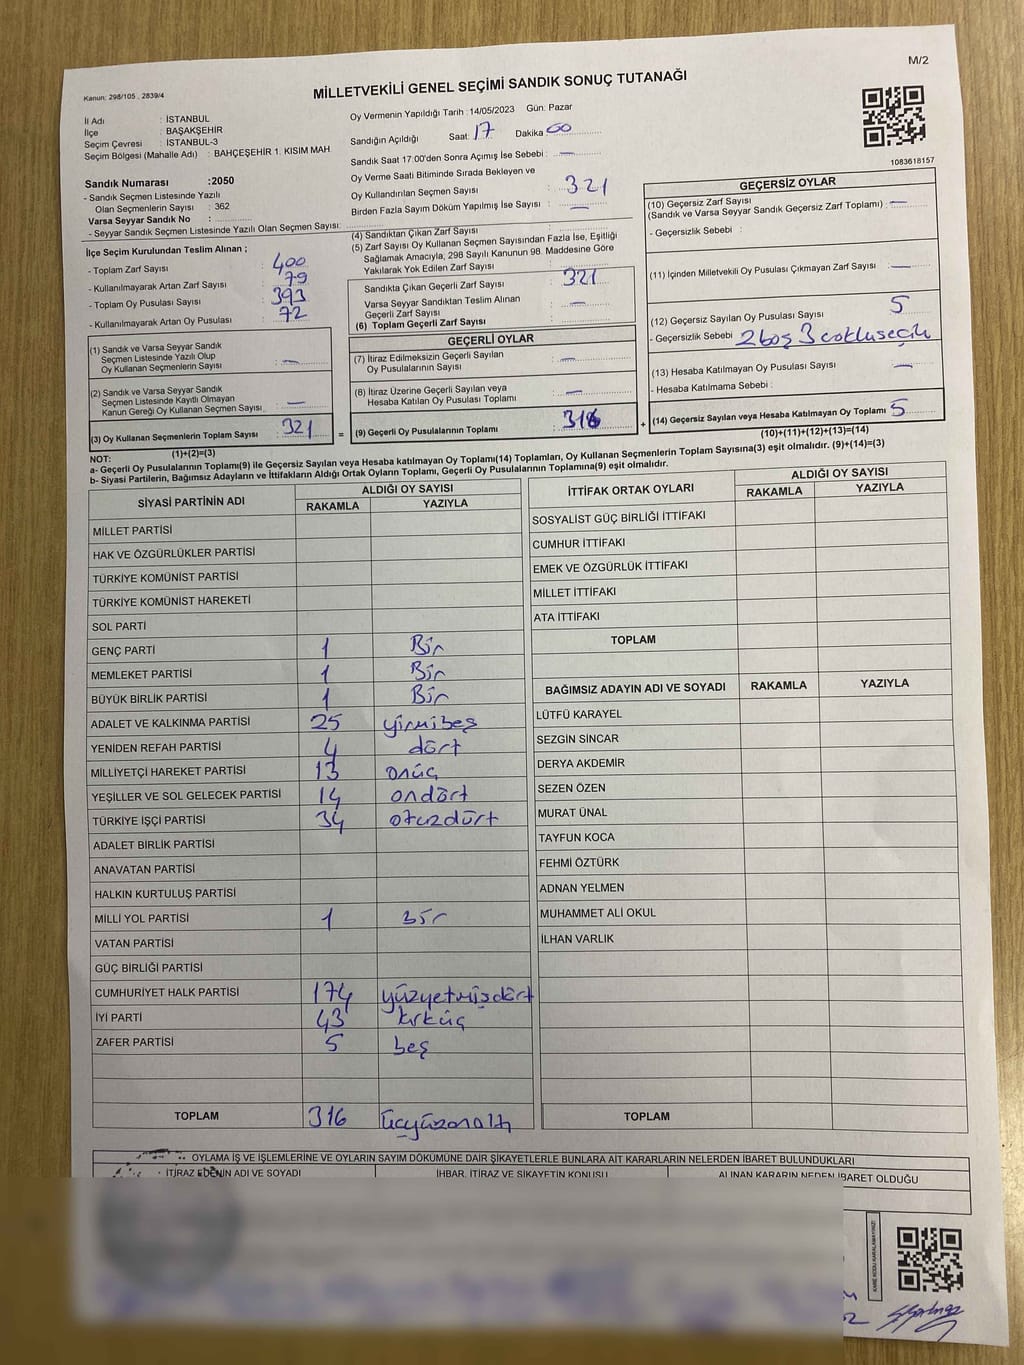 M/2
Kanun: 298/105 , 2839/4
MİLLETVEKİLİ GENEL SEÇİMİ SANDIK SONUÇ TUTANAĞI
İl Adı : İSTANBUL
İlçe : BAŞAKŞEHİR
Seçim Çevresi : İSTANBUL-3
Seçim Bölgesi (Mahalle Adı) : BAHÇEŞEHİR 1. KISIM MAH.
Sandık Numarası :2050
- Sandık Seçmen Listesinde Yazılı
Olan Seçmenlerin Sayısı : 362
Varsa Seyyar Sandık No :
- Seyyar Sandık Seçmen Listesinde Yazılı Olan Seçmen Sayısı:
İlçe Seçim Kurulundan Teslim Alınan ;
- Toplam Zarf Sayısı : 400
- Kullanılmayarak Artan Zarf Sayısı : 79
- Toplam Oy Pusulası Sayısı : 393
- Kullanılmayarak Artan Oy Pusulası : 72
(1) Sandık ve Varsa Seyyar Sandık
Seçmen Listesinde Yazılı Olup
Oy Kullanan Seçmenlerin Sayısı : —
(2) Sandık ve Varsa Seyyar Sandık
Seçmen Listesinde Kayıtlı Olmayan
Kanun Gereği Oy Kullanan Seçmen Sayısı : —
(3) Oy Kullanan Seçmenlerin Toplam Sayısı : 321
(1)+(2)=(3)
Oy Vermenin Yapıldığı Tarih : 14/05/2023 Gün: Pazar
Sandığın Açıldığı Saat: 17 Dakika: 00
Sandık Saat 17:00'den Sonra Açımış İse Sebebi : —
Oy Verme Saati Bitiminde Sırada Bekleyen ve
Oy Kullandırılan Seçmen Sayısı : 321
Birden Fazla Sayım Döküm Yapılmış İse Sayısı : —
(4) Sandıktan Çıkan Zarf Sayısı :
(5) Zarf Sayısı Oy Kullanan Seçmen Sayısından Fazla İse, Eşitliği
Sağlamak Amacıyla, 298 Sayılı Kanunun 98. Maddesine Göre
Yakılarak Yok Edilen Zarf Sayısı :
Sandıkta Çıkan Geçerli Zarf Sayısı : 321
Varsa Seyyar Sandıktan Teslim Alınan
Geçerli Zarf Sayısı : —
(6) Toplam Geçerli Zarf Sayısı :
GEÇERLİ OYLAR
(7) İtiraz Edilmeksizin Geçerli Sayılan
Oy Pusulalarının Sayısı : —
(8) İtiraz Üzerine Geçerli Sayılan veya
Hesaba Katılan Oy Pusulası Toplamı : —
= (9) Geçerli Oy Pusulalarının Toplamı : 316
1083618157
GEÇERSİZ OYLAR
(10) Geçersiz Zarf Sayısı
(Sandık ve Varsa Seyyar Sandık Geçersiz Zarf Toplamı) : —
- Geçersizlik Sebebi :
(11) İçinden Milletvekili Oy Pusulası Çıkmayan Zarf Sayısı : —
(12) Geçersiz Sayılan Oy Pusulası Sayısı : 5
- Geçersizlik Sebebi : 2 boş 3 çoklu seçik
(13) Hesaba Katılmayan Oy Pusulası Sayısı : —
- Hesaba Katılmama Sebebi :
+ (14) Geçersiz Sayılan veya Hesaba Katılmayan Oy Toplamı : 5
(10)+(11)+(12)+(13)=(14)
NOT:
a- Geçerli Oy Pusulalarının Toplamı(9) ile Geçersiz Sayılan veya Hesaba katılmayan Oy Toplamı(14) Toplamları, Oy Kullanan Seçmenlerin Toplam Sayısına(3) eşit olmalıdır. (9)+(14)=(3)
b- Siyasi Partilerin, Bağımsız Adayların ve İttifakların Aldığı Ortak Oyların Toplamı, Geçerli Oy Pusulalarının Toplamına(9) eşit olmalıdır.
SİYASİ PARTİNİN ADI ALDIĞI OY SAYISI
RAKAMLA YAZIYLA
MİLLET PARTİSİ
HAK VE ÖZGÜRLÜKLER PARTİSİ
TÜRKİYE KOMÜNİST PARTİSİ
TÜRKİYE KOMÜNİST HAREKETİ
SOL PARTİ
GENÇ PARTİ 1 Bir
MEMLEKET PARTİSİ 1 Bir
BÜYÜK BİRLİK PARTİSİ 1 Bir
ADALET VE KALKINMA PARTİSİ 25 yirmibeş
YENİDEN REFAH PARTİSİ 4 dört
MİLLİYETÇİ HAREKET PARTİSİ 13 onüç
YEŞİLLER VE SOL GELECEK PARTİSİ 14 ondört
TÜRKİYE İŞÇİ PARTİSİ 34 otuzdört
ADALET BİRLİK PARTİSİ
ANAVATAN PARTİSİ
HALKIN KURTULUŞ PARTİSİ
MİLLİ YOL PARTİSİ 1 bir
VATAN PARTİSİ
GÜÇ BİRLİĞİ PARTİSİ
CUMHURİYET HALK PARTİSİ 174 yüzyetmişdört
İYİ PARTİ 43 kırküç
ZAFER PARTİSİ 5 beş
TOPLAM 316 üçyüzonaltı
İTTİFAK ORTAK OYLARI ALDIĞI OY SAYISI
RAKAMLA YAZIYLA
SOSYALİST GÜÇ BİRLİĞİ İTTİFAKI
CUMHUR İTTİFAKI
EMEK VE ÖZGÜRLÜK İTTİFAKI
MİLLET İTTİFAKI
ATA İTTİFAKI
TOPLAM
BAĞIMSIZ ADAYIN ADI VE SOYADI RAKAMLA YAZIYLA
LÜTFÜ KARAYEL
SEZGİN SİNCAR
DERYA AKDEMİR
SEZEN ÖZEN
MURAT ÜNAL
TAYFUN KOCA
FEHMİ ÖZTÜRK
ADNAN YELMEN
MUHAMMET ALİ OKUL
İLHAN VARLIK
TOPLAM
OYLAMA İŞ VE İŞLEMLERİNE VE OYLARIN SAYIM DÖKÜMÜNE DAİR ŞİKAYETLERLE BUNLARA AİT KARARLARIN NELERDEN İBARET BULUNDUKLARI
İTİRAZ EDENİN ADI VE SOYADI İHBAR, İTİRAZ VE ŞİKAYETİN KONUSU ALINAN KARARIN NEDEN İBARET OLDUĞU
KARE KODU KARALAMAYINIZ!